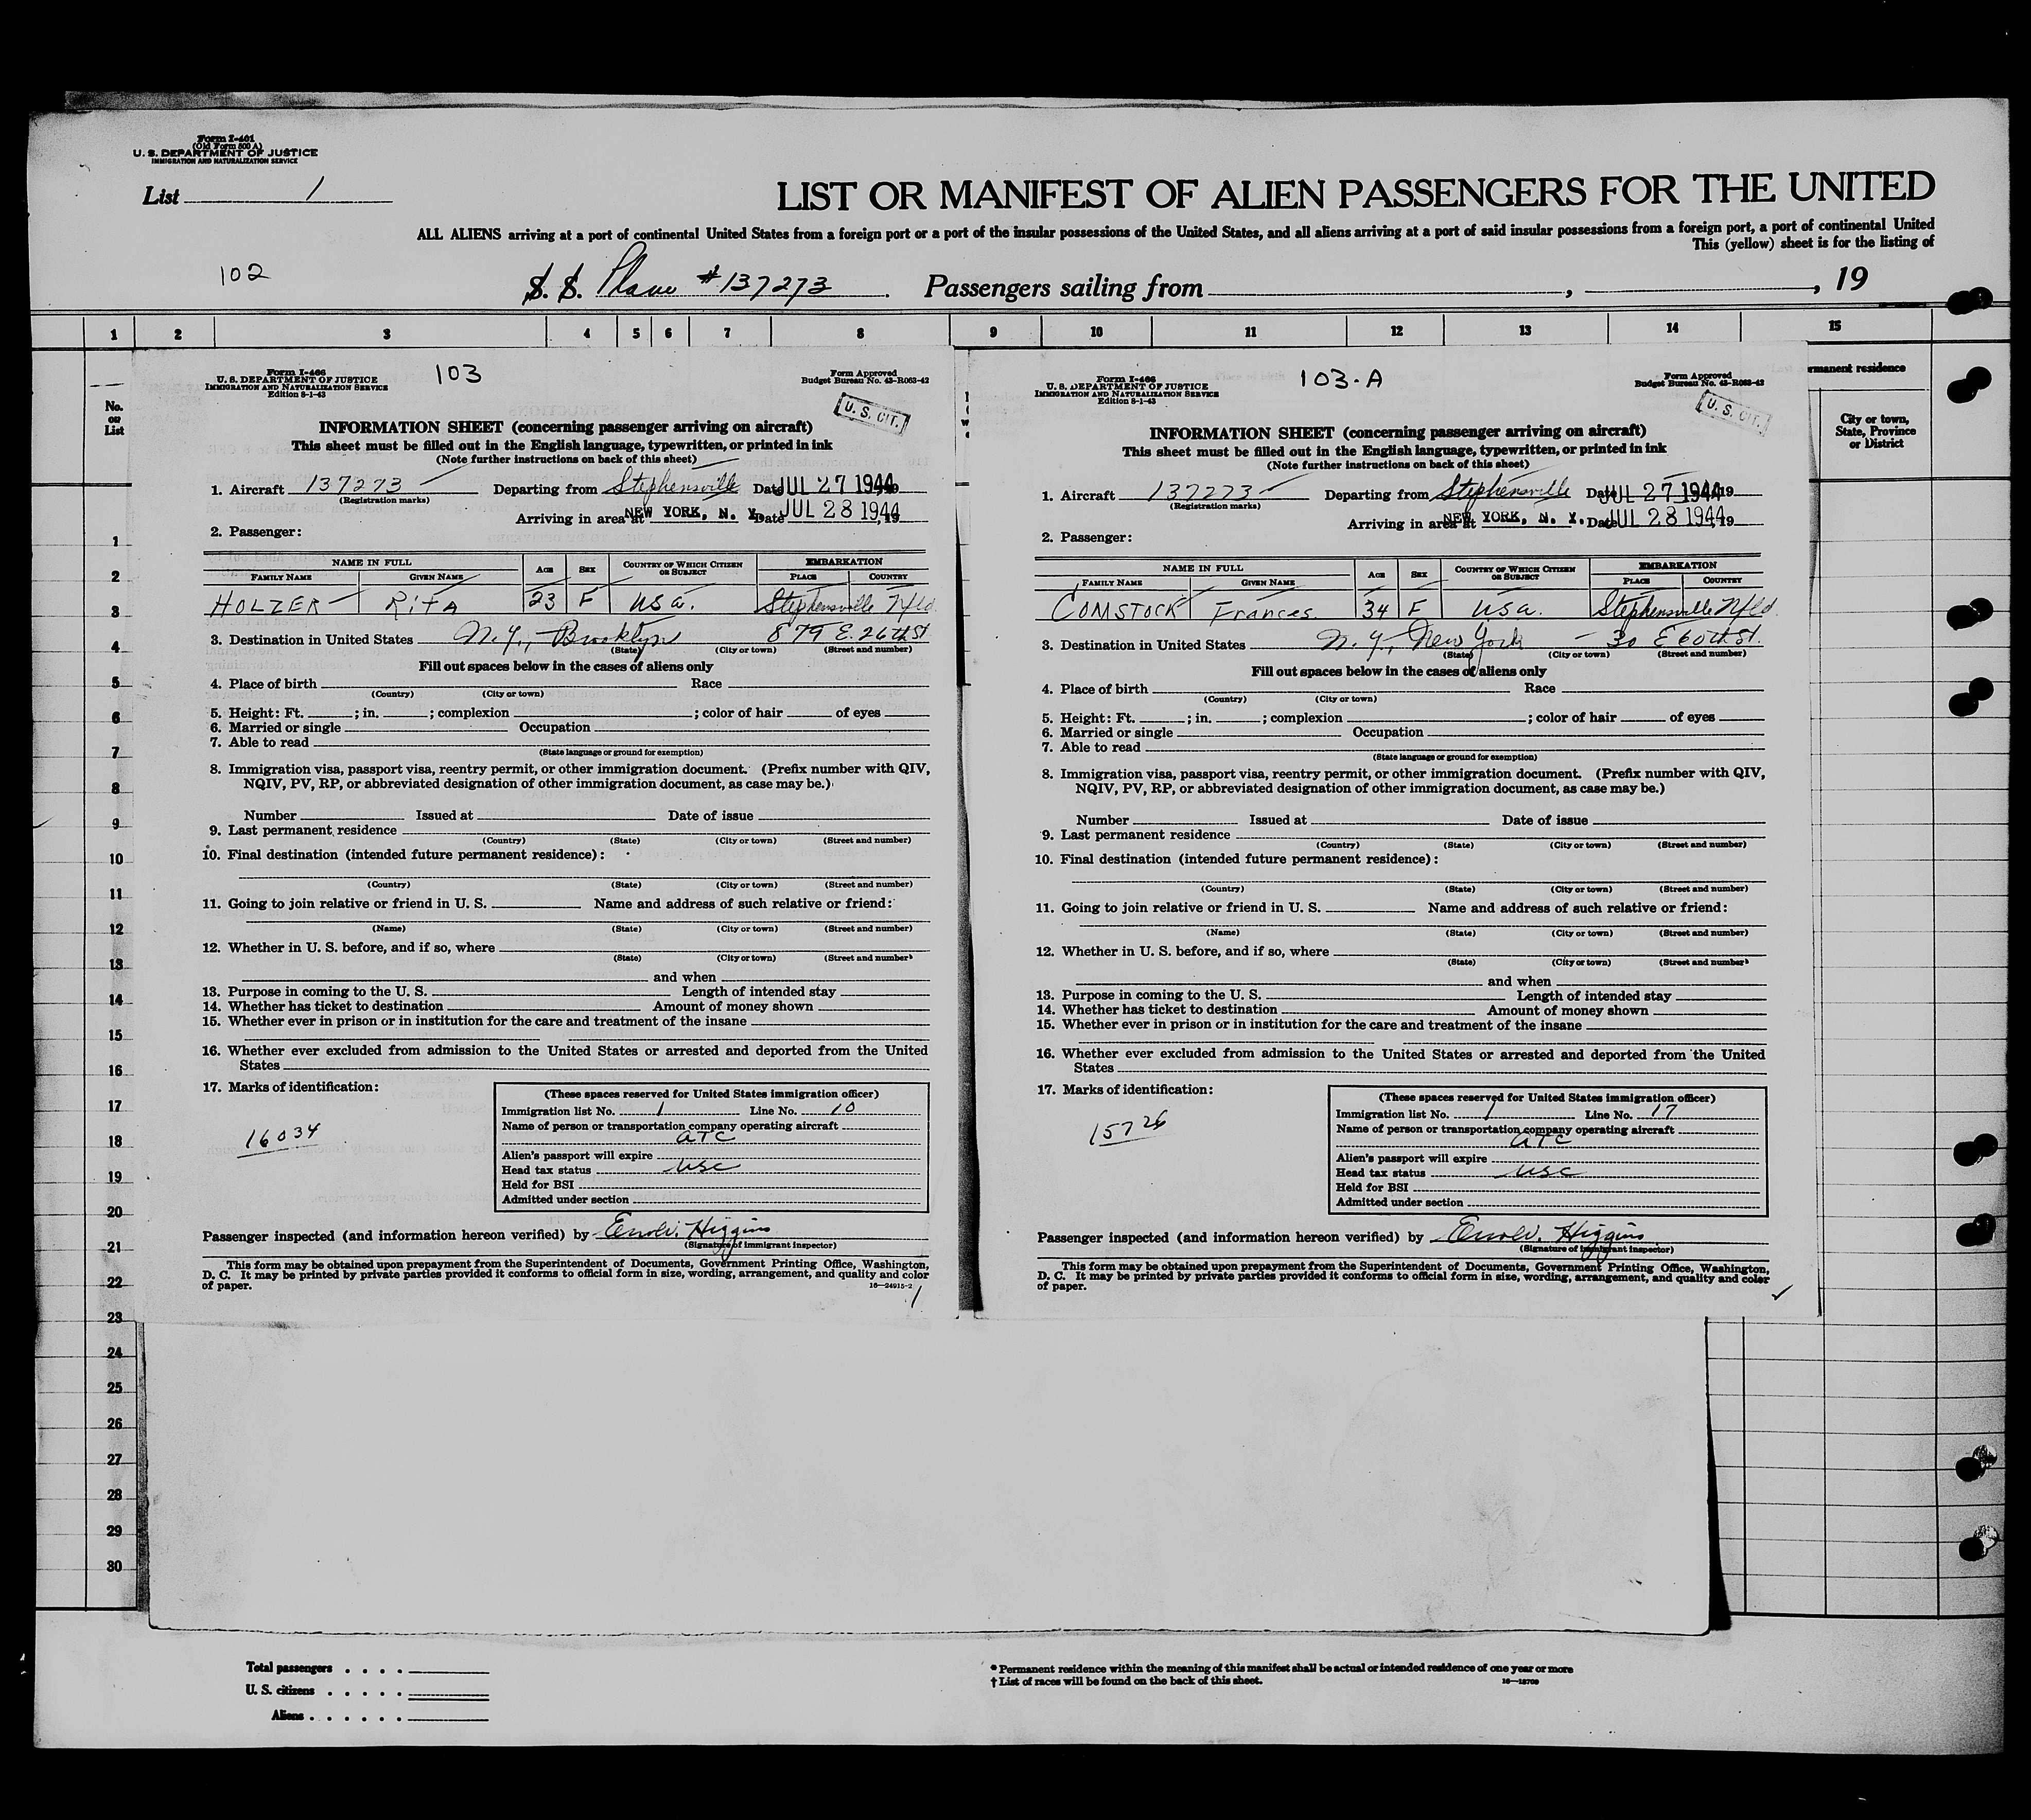 Form I-401
(Old Form 500 A)
U. S. DEPARTMENT OF JUSTICE
IMMIGRATION AND NATURALIZATION SERVICE
List 1
LIST OR MANIFEST OF ALIEN PASSENGERS FOR THE UNITED
ALL ALIENS arriving at a port of continental United States from a foreign port or a port of the insular possessions of the United States, and all aliens arriving at a port of said insular possessions from a foreign port, a port of continental United
This (yellow) sheet is for the listing of
102
S. S. Plane #137273 Passengers sailing from , , 19
1 2 3 4 5 6 7 8 9 10 11 12 13 14 15
No. on List
rmanent residence
City or town, State, Province or District
Form I-466
U. S. DEPARTMENT OF JUSTICE
IMMIGRATION AND NATURALIZATION SERVICE
Edition 8-1-43
103
Form Approved
Budget Bureau No. 43-R063-42
U. S. CIT.
INFORMATION SHEET (concerning passenger arriving on aircraft)
This sheet must be filled out in the English language, typewritten, or printed in ink
(Note further instructions on back of this sheet)
1. Aircraft 137273 Departing from Stephensville Date JUL 27 1944 19
(Registration marks)
Arriving in area at NEW YORK, N. Y. Date JUL 28 1944, 19
2. Passenger:
NAME IN FULL AGE SEX COUNTRY OF WHICH CITIZEN OR SUBJECT EMBARKATION
FAMILY NAME GIVEN NAME PLACE COUNTRY
HOLZER Rita 23 F USa. Stephensville Nfld.
3. Destination in United States N.Y., Brooklyn 879 E. 26th St
(State) (City or town) (Street and number)
Fill out spaces below in the cases of aliens only
4. Place of birth Race
(Country) (City or town)
5. Height: Ft. ; in. ; complexion ; color of hair of eyes
6. Married or single Occupation
7. Able to read
(State language or ground for exemption)
8. Immigration visa, passport visa, reentry permit, or other immigration document. (Prefix number with QIV,
NQIV, PV, RP, or abbreviated designation of other immigration document, as case may be.)
Number Issued at Date of issue
9. Last permanent residence
(Country) (State) (City or town) (Street and number)
10. Final destination (intended future permanent residence):
(Country) (State) (City or town) (Street and number)
11. Going to join relative or friend in U. S. Name and address of such relative or friend:
(Name) (State) (City or town) (Street and number)
12. Whether in U. S. before, and if so, where
(State) (City or town) (Street and number)
and when
13. Purpose in coming to the U. S. Length of intended stay
14. Whether has ticket to destination Amount of money shown
15. Whether ever in prison or in institution for the care and treatment of the insane
16. Whether ever excluded from admission to the United States or arrested and deported from the United
States
17. Marks of identification:
16034
(These spaces reserved for United States immigration officer)
Immigration list No. 1 Line No. 10
Name of person or transportation company operating aircraft
ATC
Alien's passport will expire
Head tax status USC
Held for BSI
Admitted under section
Passenger inspected (and information hereon verified) by Higgins
(Signature of immigrant inspector)
This form may be obtained upon prepayment from the Superintendent of Documents, Government Printing Office, Washington,
D. C. It may be printed by private parties provided it conforms to official form in size, wording, arrangement, and quality and color
of paper.
16—24915-2
Form I-466
U. S. DEPARTMENT OF JUSTICE
IMMIGRATION AND NATURALIZATION SERVICE
Edition 8-1-43
103-A
Form Approved
Budget Bureau No. 43-R063-42
U. S. CIT.
INFORMATION SHEET (concerning passenger arriving on aircraft)
This sheet must be filled out in the English language, typewritten, or printed in ink
(Note further instructions on back of this sheet)
1. Aircraft 137273 Departing from Stephensville Date JUL 27 1944, 19
(Registration marks)
Arriving in area at NEW YORK, N. Y. Date JUL 28 1944, 19
2. Passenger:
NAME IN FULL AGE SEX COUNTRY OF WHICH CITIZEN OR SUBJECT EMBARKATION
FAMILY NAME GIVEN NAME PLACE COUNTRY
COMSTOCK Frances 34 F USa. Stephensville Nfld.
3. Destination in United States N.Y., New York - 30 E 60th St.
(State) (City or town) (Street and number)
Fill out spaces below in the cases of aliens only
4. Place of birth Race
(Country) (City or town)
5. Height: Ft. ; in. ; complexion ; color of hair of eyes
6. Married or single Occupation
7. Able to read
(State language or ground for exemption)
8. Immigration visa, passport visa, reentry permit, or other immigration document. (Prefix number with QIV,
NQIV, PV, RP, or abbreviated designation of other immigration document, as case may be.)
Number Issued at Date of issue
9. Last permanent residence
(Country) (State) (City or town) (Street and number)
10. Final destination (intended future permanent residence):
(Country) (State) (City or town) (Street and number)
11. Going to join relative or friend in U. S. Name and address of such relative or friend:
(Name) (State) (City or town) (Street and number)
12. Whether in U. S. before, and if so, where
(State) (City or town) (Street and number)
and when
13. Purpose in coming to the U. S. Length of intended stay
14. Whether has ticket to destination Amount of money shown
15. Whether ever in prison or in institution for the care and treatment of the insane
16. Whether ever excluded from admission to the United States or arrested and deported from the United
States
17. Marks of identification:
15726
(These spaces reserved for United States immigration officer)
Immigration list No. 1 Line No. 17
Name of person or transportation company operating aircraft
ATC
Alien's passport will expire
Head tax status USC
Held for BSI
Admitted under section
Passenger inspected (and information hereon verified) by Higgins
(Signature of immigrant inspector)
This form may be obtained upon prepayment from the Superintendent of Documents, Government Printing Office, Washington,
D. C. It may be printed by private parties provided it conforms to official form in size, wording, arrangement, and quality and color
of paper.
1
2
3
4
5
6
7
8
9
10
11
12
13
14
15
16
17
18
19
20
21
22
23
24
25
26
27
28
29
30
Total passengers
U. S. citizens
Aliens
* Permanent residence within the meaning of this manifest shall be actual or intended residence of one year or more
† List of races will be found on the back of this sheet.
16—18709